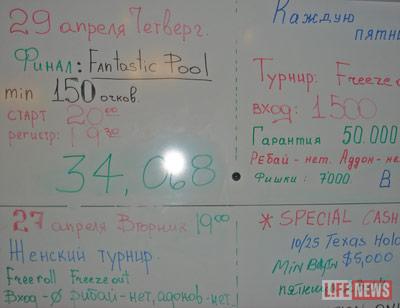 29 апреля Четверг.
Финал: Fantastic Pool
min 150 очков.
старт 20 00
регистр: 19 30
34,068
27 апреля Вторник 19 00
Женский турнир.
Freeroll Freezeout
Вход - 0 рибай-нет, адонов-нет..
Каждую
пятни
Турнир: Freezeo
вход: 1500
Гарантия 50.000
Ребай - нет. Аддон - не
Фишки: 7000 В
* SPECIAL CASH
10/25 Texas Hold
Min Buyin $5,000
пятниц
LIFE NEWS